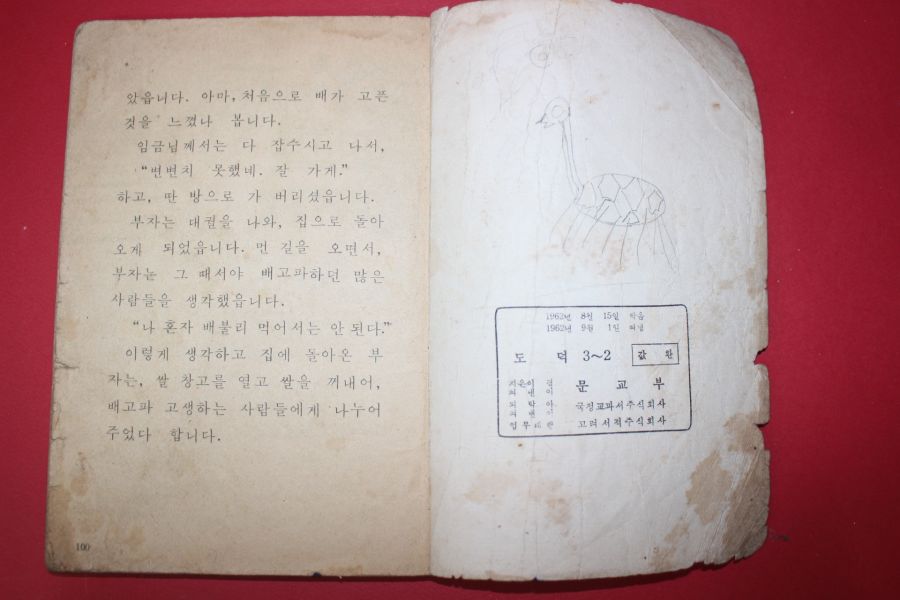 았읍니다. 아마, 처음으로 배가 고픈
것을 느꼈나 봅니다.
임금님께서는 다 잡수시고 나서,
“변변치 못했네. 잘 가게.”
하고, 딴 방으로 가 버리셨읍니다.
부자는 대궐을 나와, 집으로 돌아
오게 되었읍니다. 먼 길을 오면서,
부자는 그 때서야 배고파하던 많은
사람들을 생각했읍니다.
“나 혼자 배불리 먹어서는 안 된다.”
이렇게 생각하고 집에 돌아온 부
자는, 쌀 창고를 열고 쌀을 꺼내어,
배고파 고생하는 사람들에게 나누어
주었다 합니다.
100
1962년 8월 15일 박음
1962년 9월 1일 펴냄
도 덕 3~2
값 환
지은이 겸
펴낸이 문 교 부
펴낸이 국정교과서주식회사
고려서적주식회사